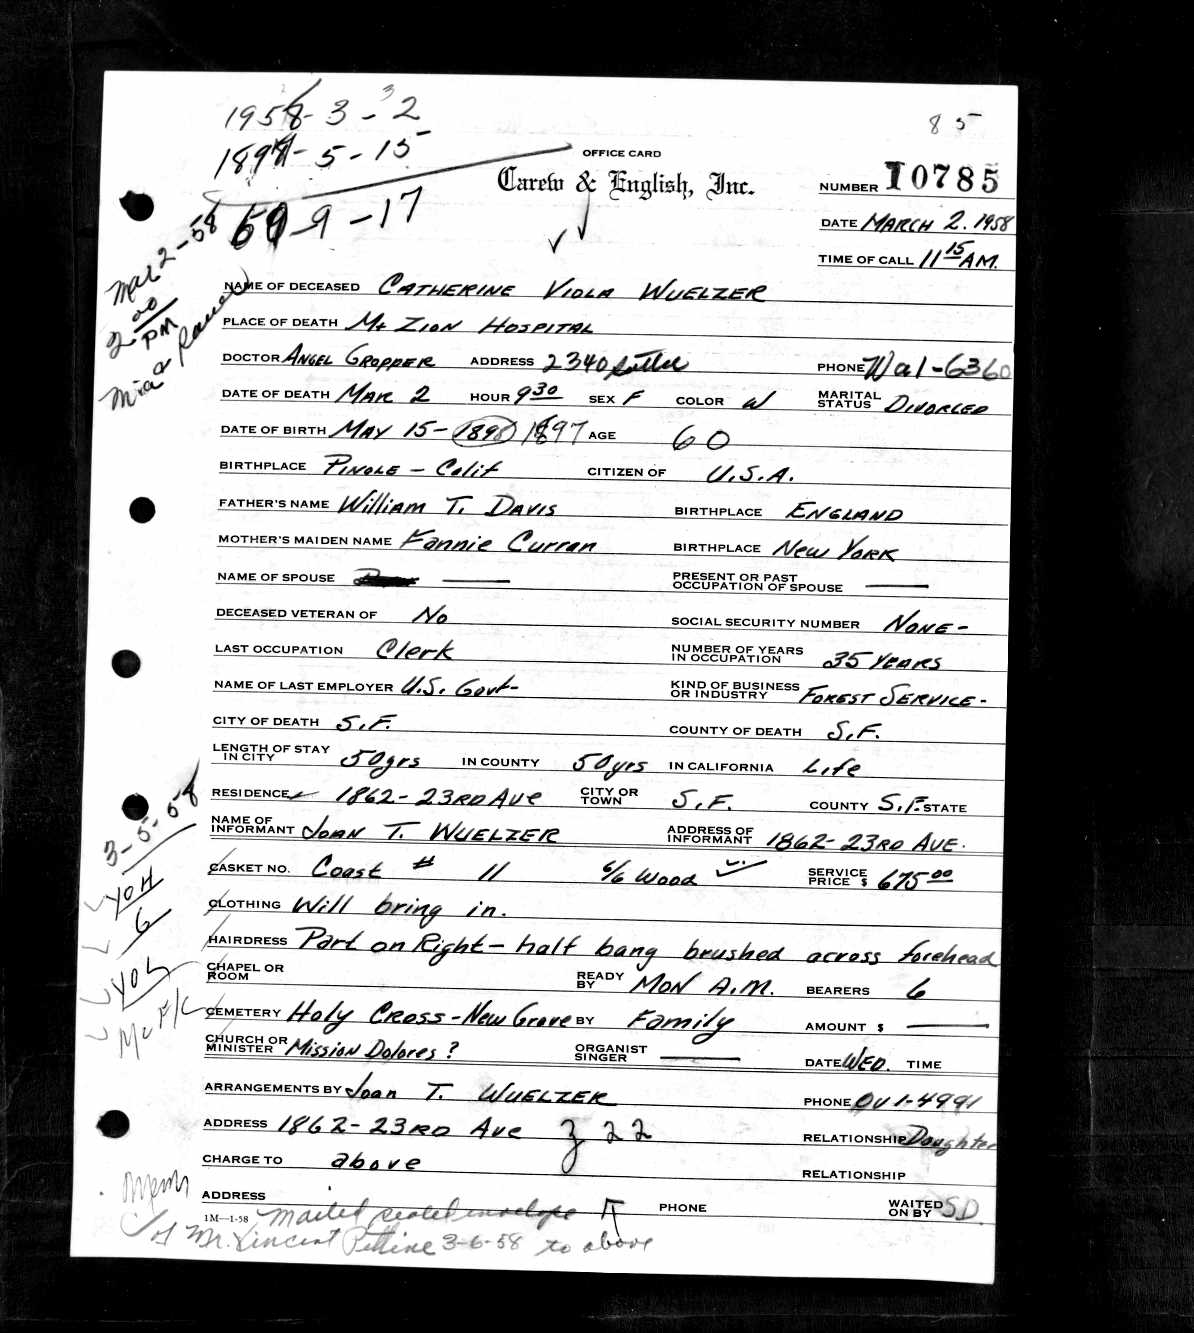 1958-3-2
85
1897-5-15
OFFICE CARD
Carew & English, Inc.
NUMBER 10785
60-9-17
DATE MARCH 2. 1958
TIME OF CALL 11 15 A.M.
Mar 2-58
2 00
PM
NAME OF DECEASED CATHERINE VIOLA WUELZER
PLACE OF DEATH Mt ZION HOSPITAL
DOCTOR ANGEL GROPPER ADDRESS 2340 Sutter PHONE Wal-6360
DATE OF DEATH MAR 2 HOUR 9 30 SEX F COLOR W MARITAL STATUS DIVORCED
DATE OF BIRTH MAY 15- 1898 1897 AGE 60
BIRTHPLACE PINOLE - Calif CITIZEN OF U.S.A.
FATHER'S NAME William T. DAVIS BIRTHPLACE ENGLAND
MOTHER'S MAIDEN NAME Fannie Curran BIRTHPLACE New YORK
NAME OF SPOUSE PRESENT OR PAST OCCUPATION OF SPOUSE
DECEASED VETERAN OF No SOCIAL SECURITY NUMBER NONE-
LAST OCCUPATION Clerk NUMBER OF YEARS IN OCCUPATION 35 YEARS
NAME OF LAST EMPLOYER U.S. Govt- KIND OF BUSINESS OR INDUSTRY FOREST SERVICE-
CITY OF DEATH S.F. COUNTY OF DEATH S.F.
LENGTH OF STAY IN CITY 50yrs IN COUNTY 50yrs IN CALIFORNIA Life
RESIDENCE 1862-23RD AVE CITY OR TOWN S.F. COUNTY S.F. STATE
NAME OF INFORMANT JOAN T. WUELZER ADDRESS OF INFORMANT 1862-23RD AVE.
3-5-58
CASKET NO. Coast # 11 6/6 Wood SERVICE PRICE $ 675 00
CLOTHING Will bring in.
HAIRDRESS Part on Right - half bang brushed across forehead
6
CHAPEL OR ROOM READY BY MON A.M. BEARERS 6
CEMETERY Holy CROSS-New Grave BY Family AMOUNT $
CHURCH OR MINISTER Mission Dolores? ORGANIST SINGER DATE WED. TIME
ARRANGEMENTS BY Joan T. WUELZER PHONE OV1-4991
ADDRESS 1862-23RD AVE Z 22 RELATIONSHIP Daughter
CHARGE TO above RELATIONSHIP
ADDRESS PHONE WAITED ON BY S.D.
1M-1-58 Mailed sealed envelope
of Mr. Vincent 3-6-58 to above